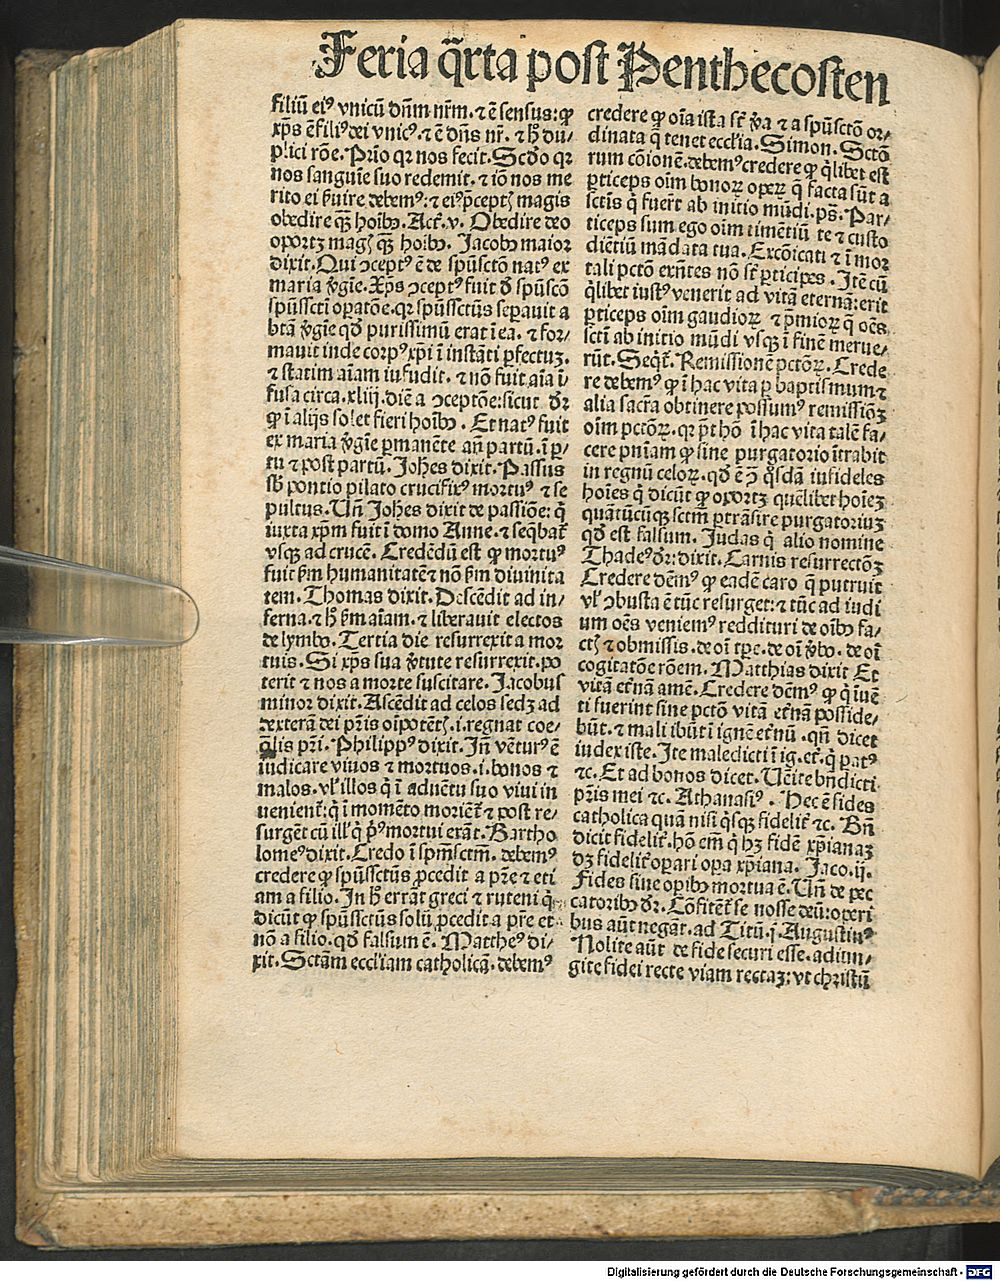 Feria q̄rta post Penthecosten
filiū eiꝰ vnicū dn̄m nr̄m. ⁊ ē sensus: ꝙ
xp̄s ē filiꝰ dei vnicꝰ. ⁊ ē dn̄s nr̄. ⁊ hͦ du-
plici rōe. Prīo qꝛ nos fecit. Scd̄o qꝛ
nos sanguīe suo redemit. ⁊ iō nos me
rito ei ẜuire debemꝰ: ⁊ eiꝰ p̄ceptꝭ magis
obedire qꝫ̄ hoībꝰ. Act̄. v. Obedire deo
oportꝫ magꝭ qꝫ̄ hoībꝰ. Jacobꝰ maior
dixit. Qui ↄceptꝰ ē de spūsctō natꝰ ex
maria v̓gīe. Xp̄s ↄceptꝰ fuit d̓ spūscō
spūsscti oꝑatōe. qꝛ spūssctūs seꝑauit a
btā v̓gīe qd̓ purissimū erat ī ea. ⁊ for-
mauit inde corpꝰ xp̄i ī instāti ꝑfectuꝫ.
⁊ statim aīam infudit. ⁊ nō fuit aīa ī
fusa circa. xliii. diē a ↄceptōe: sicut dr̄
ꝙ ī alijs solet fieri hoībꝰ. Et natꝰ fuit
ex maria v̓gīe ꝑmanēte an̄ partū. ī ꝑ-
tu ⁊ post partū. Joh̄es dixit. Passus
sb̓ pontio pilato crucifixꝰ mortuꝰ ⁊ se
pultus. Un̄ Joh̄es dixit de passiōe: q̓
iuxta xp̄m fuit ī domo Anne. ⁊ seq̄bat̄
vsqꝫ ad crucē. Credēdū est ꝙ mortuꝰ
fuit ẜm humanitatē ⁊ nō ẜm diuinita
tem. Thomas dixit. Descēdit ad in-
ferna. ⁊ hͦ ẜm aīam. ⁊ liberauit electos
de lymbo. Tertia die resurrexit a mor
tuis. Si xp̄s sua v̓tute resurrexit. po
terit ⁊ nos a morte suscitare. Jacobus
minor dixit. Ascēdit ad celos sedꝫ ad
dexterā dei pr̄is oīpotētꝭ. i. regnat coe-
q̄lis pr̄i. Philippꝰ dixit. In̄ vētur̄ꝰ ē
iudicare viuos ⁊ mortuos. i. bonos ⁊
malos. vl̓ illos q̓ ī aduētu suo viui in
uenient̄: q̓ ī momēto morient̄ ⁊ post re-
surgēt cū ill̓ q̓ p̓ꝰ mortui erāt. Bartho
lomeꝰ dixit. Credo ī spm̄sctm̄. debemꝰ
credere ꝙ spūssctūs ꝓcedit a pr̄e ⁊ eti
am a filio. In hͦ errāt greci ⁊ ruteni q̓
dicūt ꝙ spūssctūs solū ꝓcedit a pr̄e et
nō a filio. qd̓ falsum ē. Mattheꝰ di-
xit. Sctām eccl̓iam catholicā. debemꝰ
credere ꝙ oīa ista st̄ v̓a ⁊ a spūsctō or-
dinata q̄ tenet eccl̓ia. Simon. Sctō
rum cōionē. debemꝰ credere ꝙ q̓libet est
ꝑticeps oīm bonoꝝ operꝝ q̄ facta sūt a
sctīs q̓ fuert̄ ab initio mūdi. ps̄. Par-
ticeps sum ego oīm timētiū te ⁊ custo
diētiū mādata tua. Excōicati ⁊ ī mor
tali pctō exn̄tes nō st̄ ꝑticipes. Itē cū
q̓libet iustꝰ venerit ad vitā eternā: erit
ꝑticeps oīm gaudioꝝ ⁊ p̄mioꝝ q̄ oēs
sctī ab initio mūdi vsqꝫ ī finē merue-
rūt. Seqt̄. Remissionē pctōꝝ. Crede
re debemꝰ ꝙ ī hac vita ꝑ baptismum ⁊
alia sacr̄a obtinere possumꝰ remissiōꝫ
oīm pctōꝝ. qꝛ pt̄ hō ī hac vita talē fa-
cere pn̄iam ꝙ sine purgatorio ītrabit
in regnū celoꝝ. qd̓ ē ↄ̄ q̓sdā infideles
hoīes q̓ dicūt ꝙ oportꝫ quēlibet hoīeꝫ
quātūcūqꝫ sctm̄ ꝑtrāsire purgatoriuꝫ
qd̓ est falsum. Judas q̓ alio nomine
Thadeꝰ dr̄: dixit. Carnis resurrectōꝫ
Credere dēmꝰ ꝙ eadē caro q̄ putruit
vl̓ ↄbusta ē tūc resurget: ⁊ tūc ad iudi
um oēs veniemꝰ reddituri de oībꝰ fa-
ctꝭ ⁊ obmissis. de oī tꝑe. de oī v̓bo. de oī
cogitatōe rōem. Matthias dixit Et
vitā et̓nā amē. Credere dēmꝰ ꝙ q̓ īuē
ti fuerint sine pctō vitā et̓nā posside-
būt. ⁊ mali ibūt ī ignē et̓nū. qn̄ dicet
iudex iste. Ite maledicti ī ig. et̓. q̓ ꝑatꝰ
⁊c. Et ad bonos dicet. Uēite bn̄dicti
pr̄is mei ⁊c. Athanasiꝰ. Hec ē fides
catholica quā nisi q̓sqꝫ fidelit̄ ⁊c. Bn̄
dicit fidelit̄. hō em̄ q̓ hꝫ fidē xp̄ianaꝫ
dꝫ fidelit̄ oꝑari oꝑa xp̄iana. Jaco. ij.
Fides sine oꝑibꝰ mortua ē. Un̄ de pec
catoribꝰ dr̄. Cōfitēt̄ se nosse deū: operi
bus aūt negāt. ad Titū. j. Augustinꝰ
Nolite aūt de fide securi esse. adiun-
gite fidei recte viam rectaꝫ: vt christū
Digitalisierung gefördert durch die Deutsche Forschungsgemeinschaft - DFG